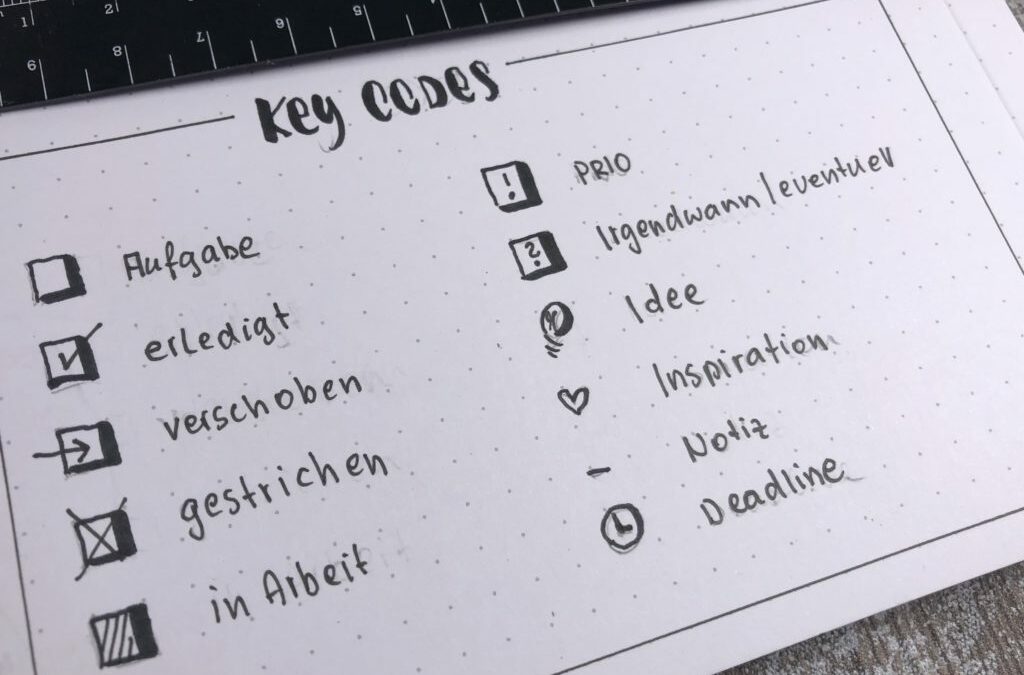 1 2 5
9 8 7 6
Key CODES
Aufgabe
erledigt
verschoben
gestrichen
in Arbeit
! PRIO
? Irgendwann/eventuell
Idee
Inspiration
Notiz
Deadline